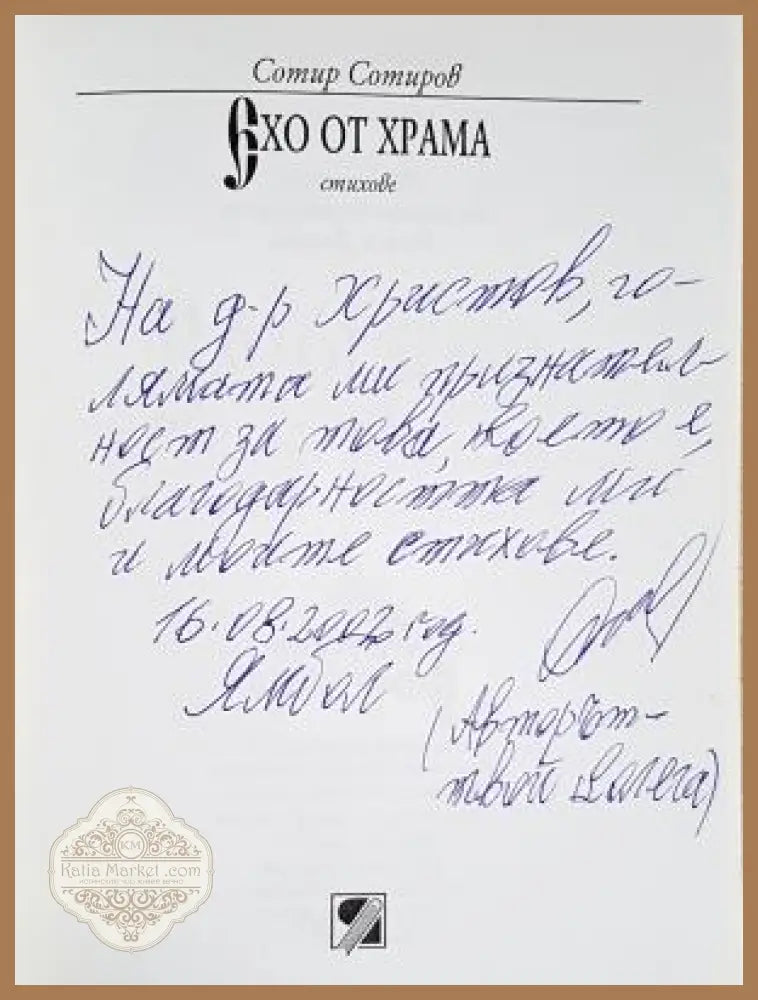 Сотир Сотиров
ЕХО ОТ ХРАМА
стихове
На д-р Христов, го-
лямата ми признател-
ност за това, което е,
благодарността ми
и моите стихове.
16.08.2002 год.
Ямбол
(Авторът-
твой колега)
KM
Katia Market .com